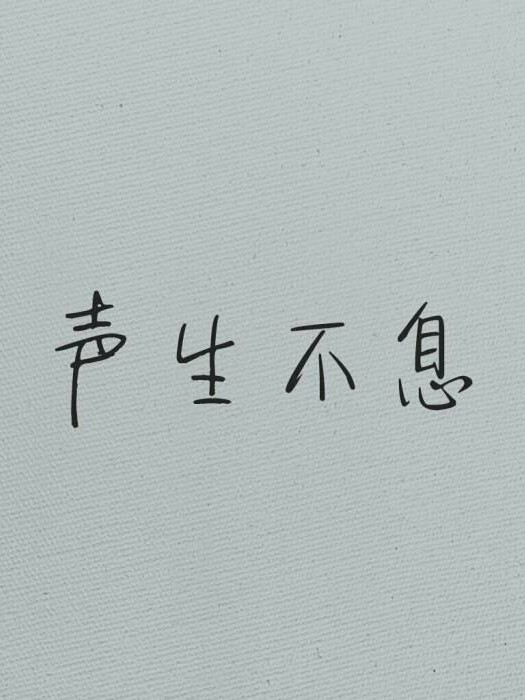 声生不息